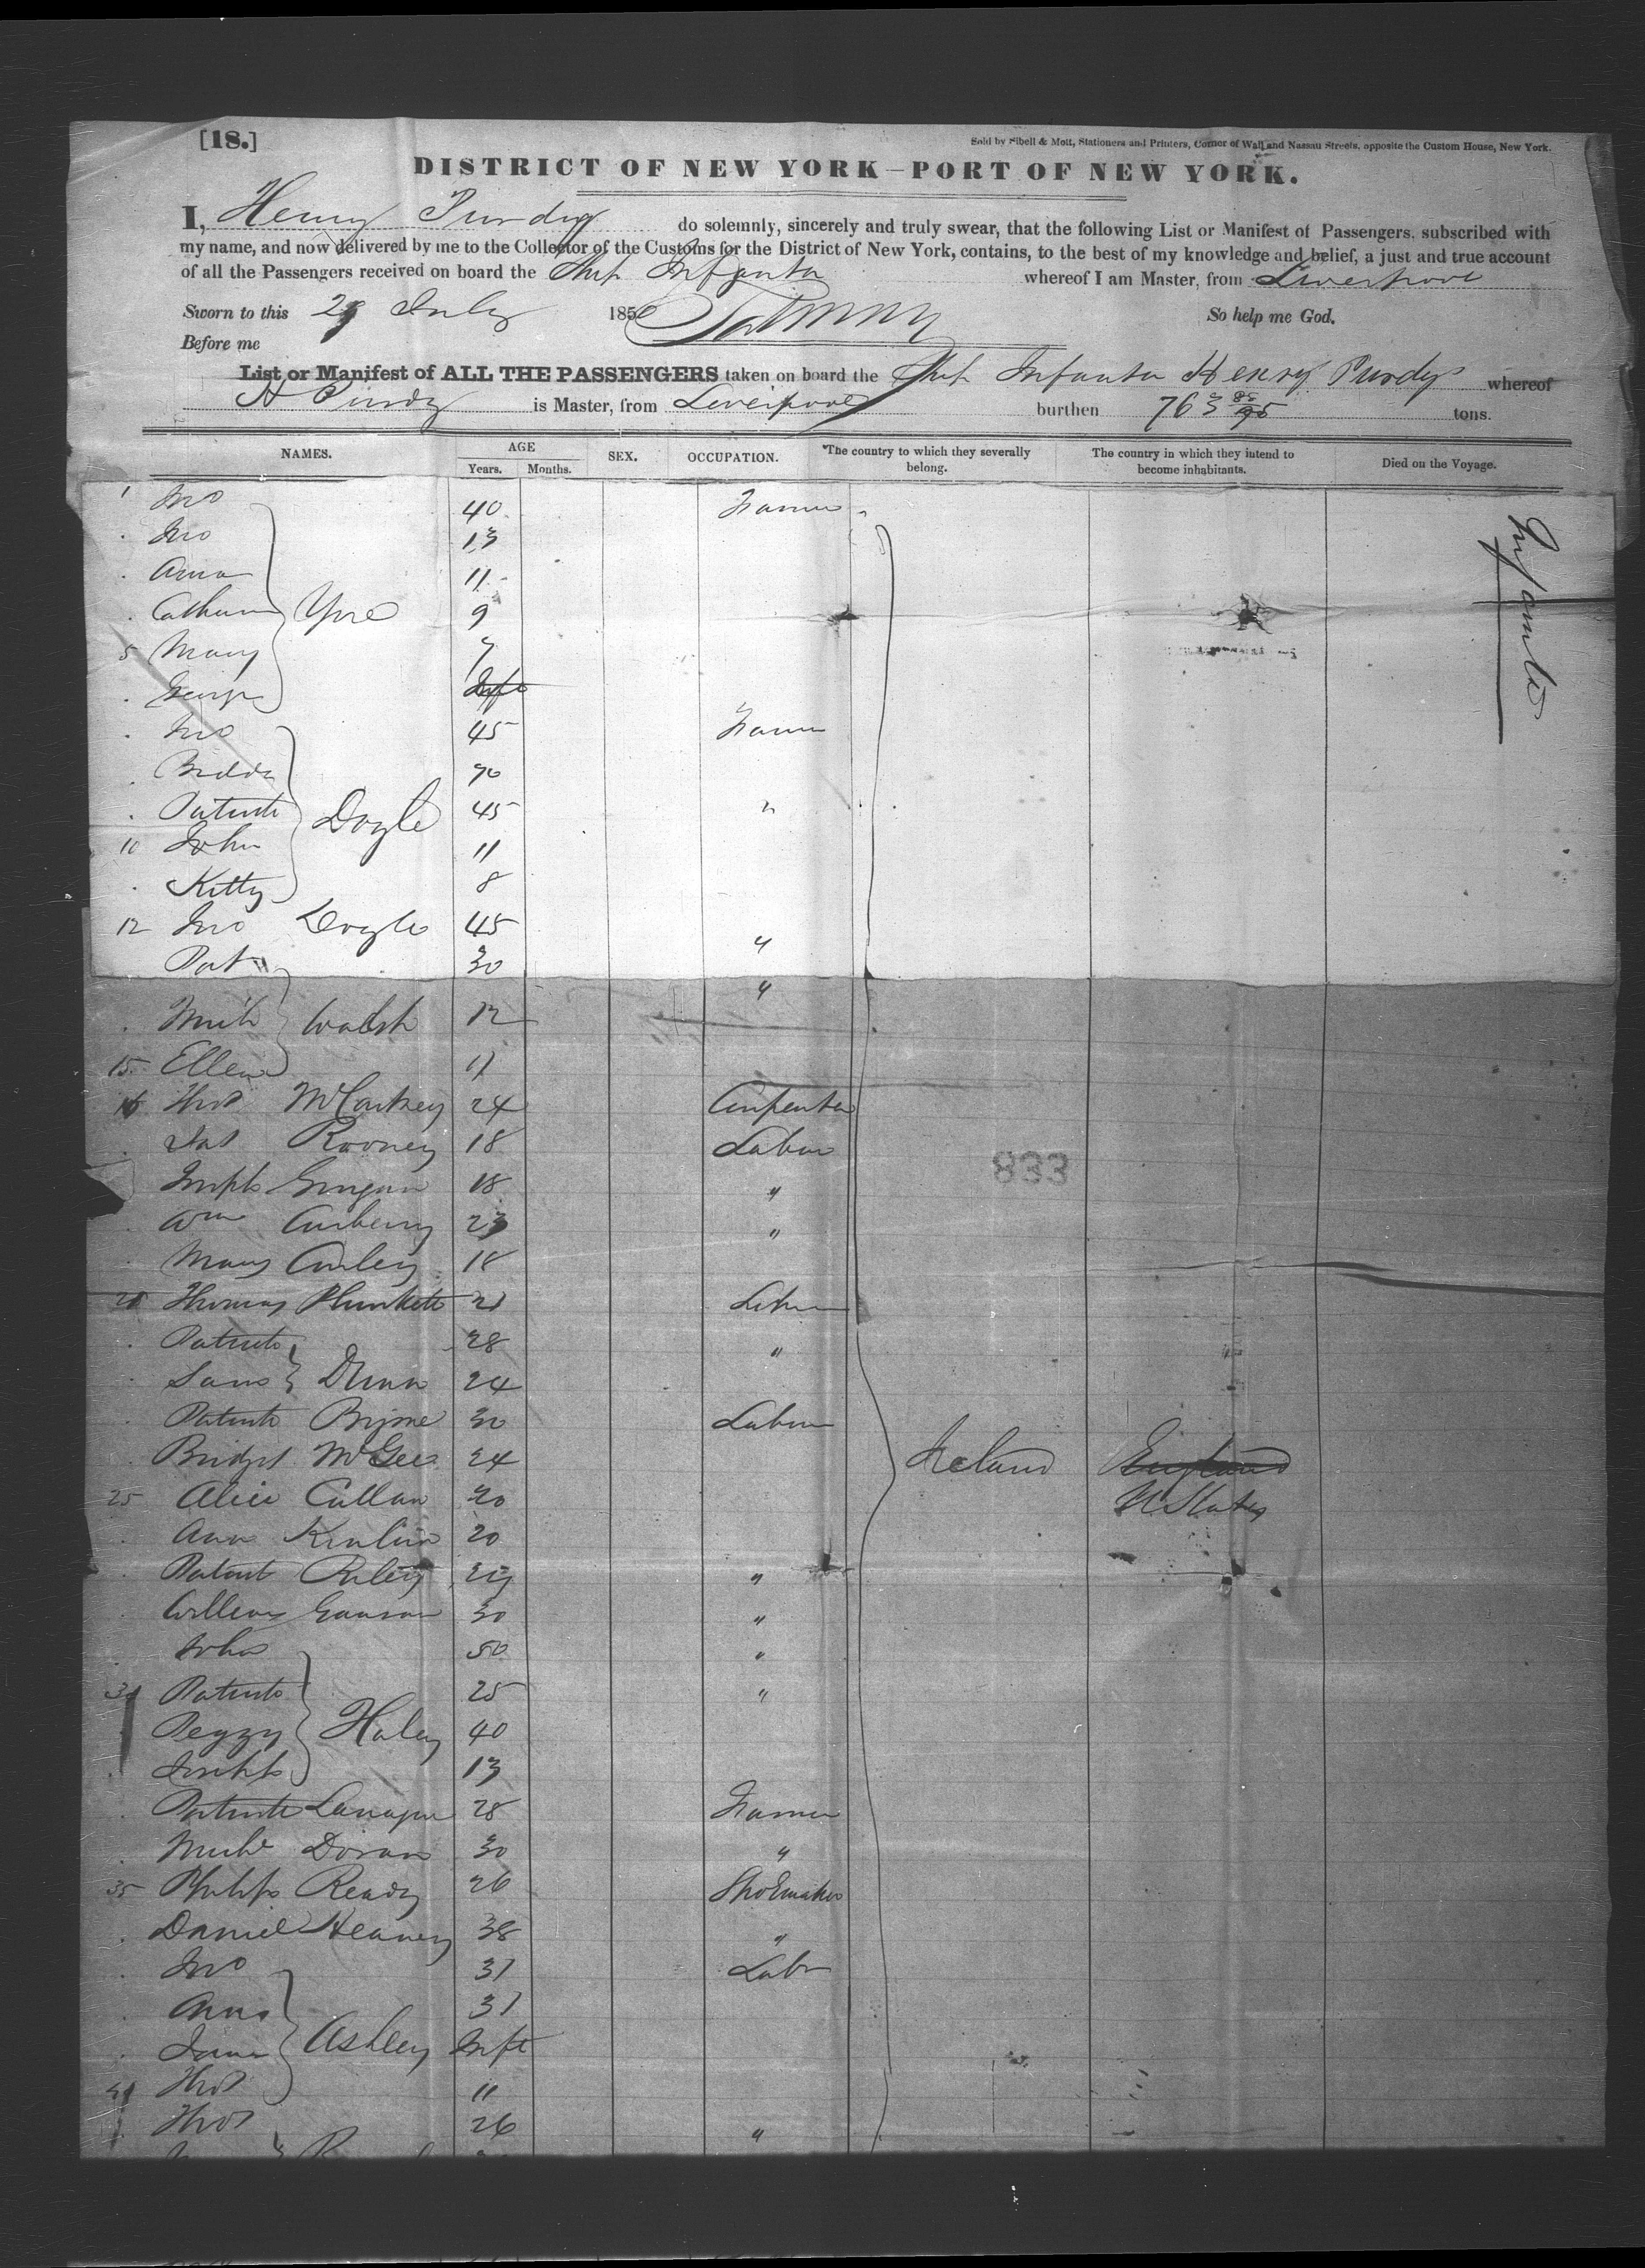 [18.]
Sold by Sibell & Mott, Stationers and Printers, Corner of Wall and Nassau Streets, opposite the Custom House, New York.
DISTRICT OF NEW YORK—PORT OF NEW YORK.
I, Henry Purdy do solemnly, sincerely and truly swear, that the following List or Manifest of Passengers, subscribed with
my name, and now delivered by me to the Collector of the Customs for the District of New York, contains, to the best of my knowledge and belief, a just and true account
of all the Passengers received on board the Ship Infanta whereof I am Master, from Liverpool
Sworn to this 29 July 185 So help me God.
Before me
List or Manifest of ALL THE PASSENGERS taken on board the Ship Infanta Henry Purdy whereof
H Purdy is Master, from Liverpool burthen 763 85/95 tons.
NAMES. AGE SEX. OCCUPATION. *The country to which they severally belong. The country in which they intend to become inhabitants. Died on the Voyage.
Years. Months.
Infanta
1 Jno 40 Farmer
Jno 13
Anna 11
Catharine Yore 9
5 Mary 7
George Inft
Jno 45 Farmer
Biddy 70
Patrick Doyle 45 "
10 John 11
Kitty 8
12 Jno Doyle 45 "
Pat 30 "
Mich Walsh 12
15 Ellen 11
16 Thos McCartney 24 Carpenter
Jas Rooney 18 Labor
Joseph 18 "
Wm Carberry 23 "
Mary Curley 18
20 Thomas Plunkett 21 Labor
Patrick 28 "
Dunn 24
Patrick Byrne 30 Labour
Bridget McGee 24 Ireland England
25 Alice Callan 20 U States
Ann 20
Patrick Riley "
William 30 "
John 50 "
30 Patrick 25 "
Peggy Haley 40
Joseph 13
Patrick 28 Farmer
Michl Doran 30 "
35 Philip Ready 26 Shoemaker
Daniel Heaney 38 "
Jno 31 Labr
Anna 31
James Ashley Inft
Thos 11
Thos 26 "
833